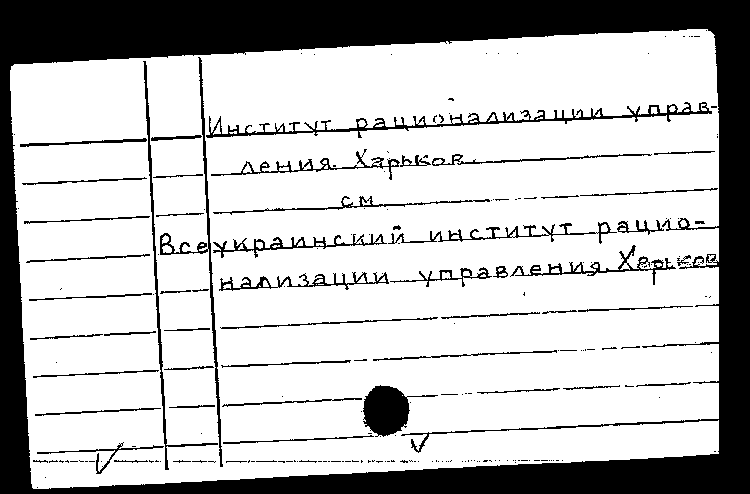 Институт рационализации управ-
ления. Харьков.
см
Всеукраинский институт рацио-
нализации управления. Харьков